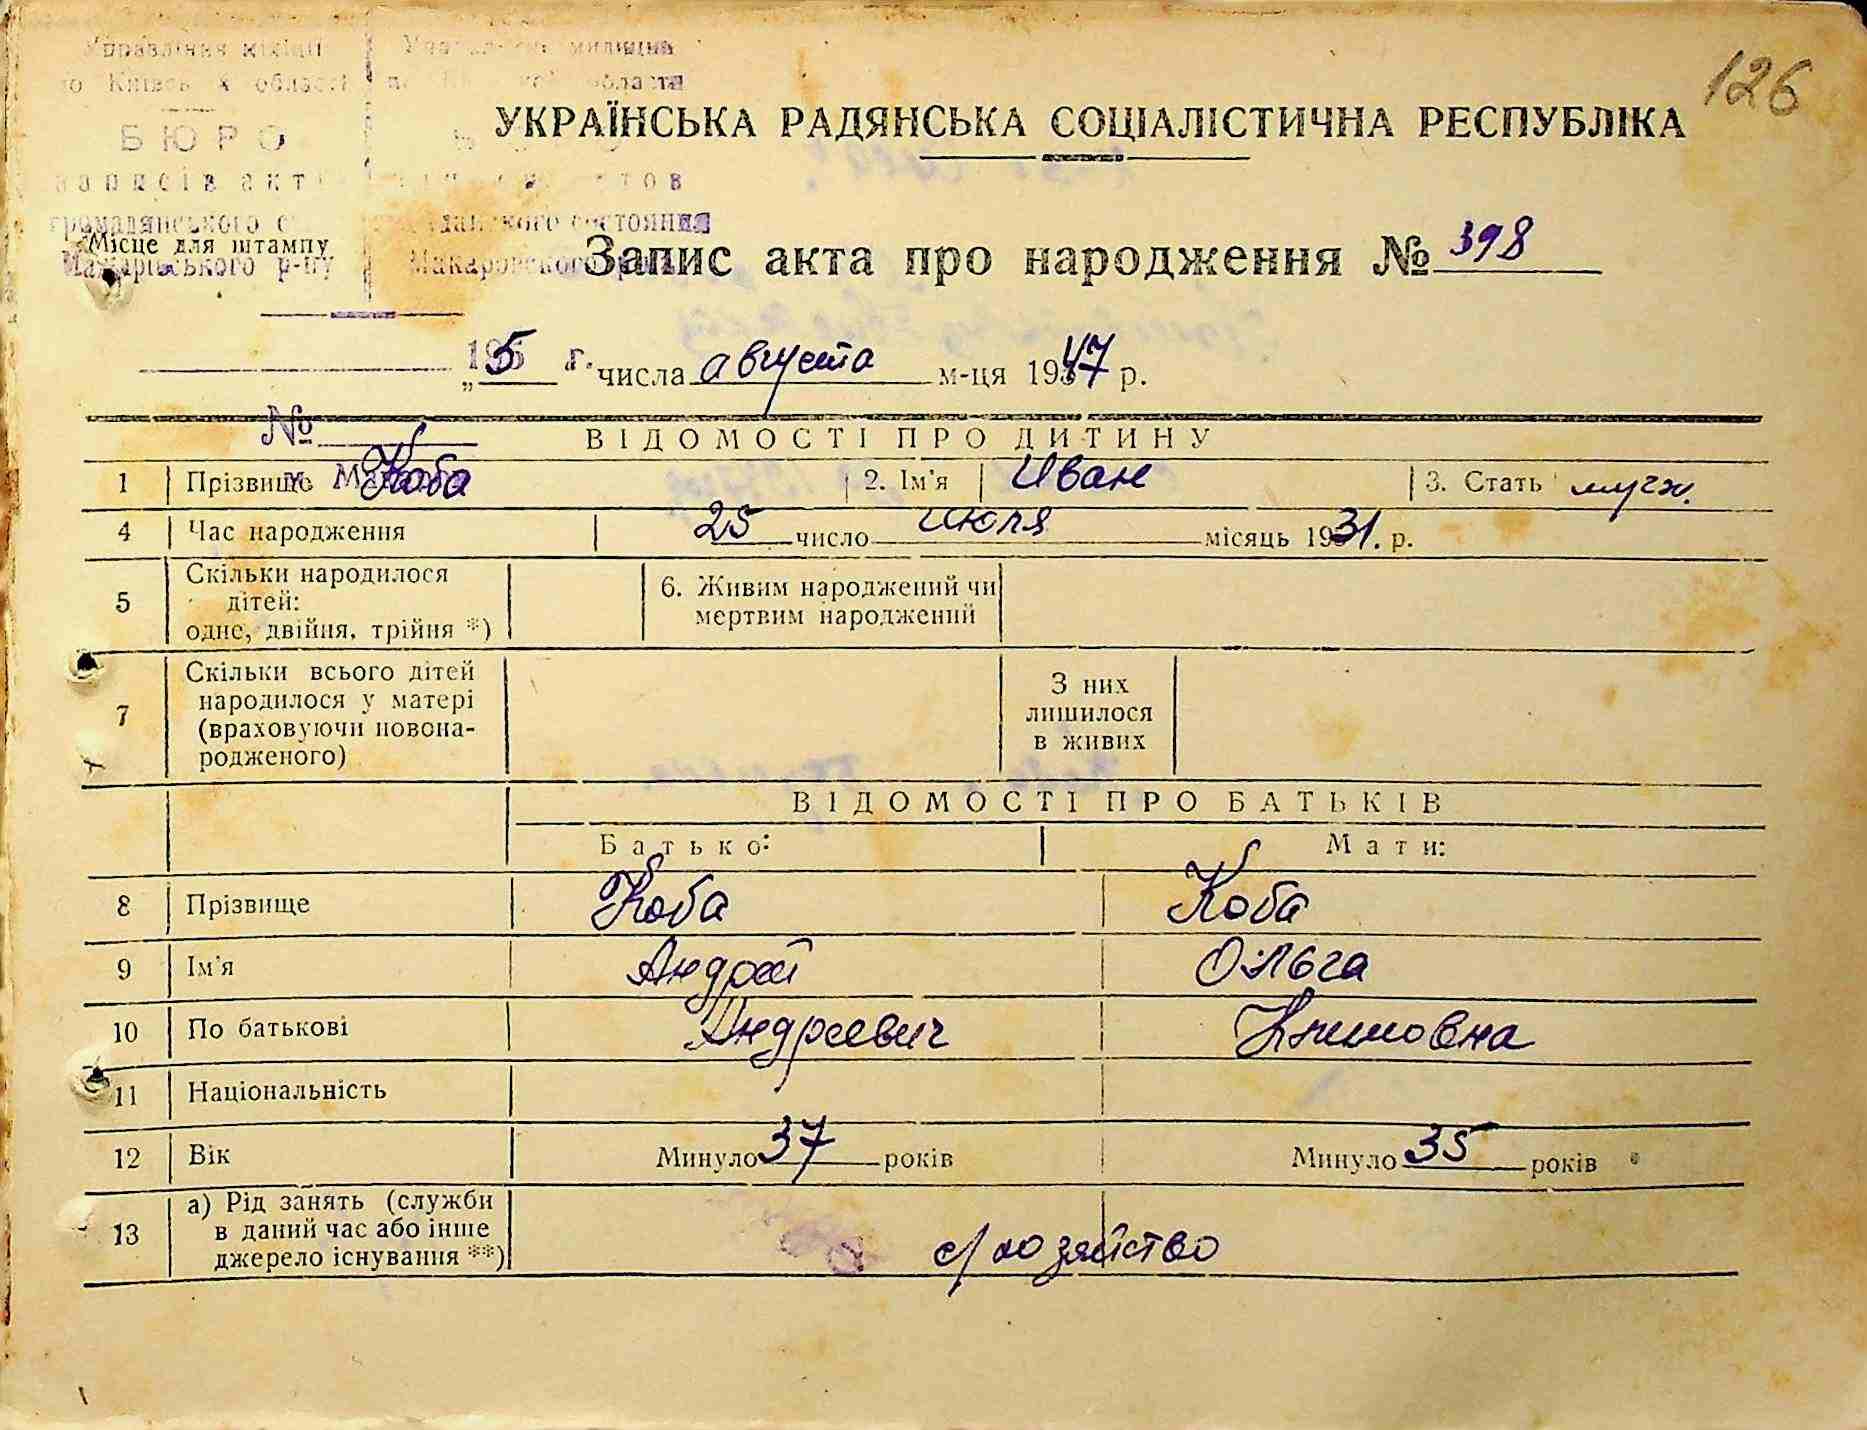 126
Управління міліції
Управление милиции
по Київськ й області
по области
БЮРО
записів акт
актов
громадянського с
гражданского состояния
Місце для штампу
Макарівського р-ну
Макаровского
УКРАЇНСЬКА РАДЯНСЬКА СОЦІАЛІСТИЧНА РЕСПУБЛІКА
Запис акта про народження № 398
195 г.
„5 числа августа м-ця 1947 р.
№
ВІДОМОСТІ ПРО ДИТИНУ
1 Прізвище Коба 2. Ім'я Иван 3. Стать муж.
4 Час народження 25 число Июля місяць 1931. р.
5 Скільки народилося дітей: одне, двійня, трійня *) 6. Живим народжений чи мертвим народжений
7 Скільки всього дітей народилося у матері (враховуючи новонародженого) З них лишилося в живих
ВІДОМОСТІ ПРО БАТЬКІВ
Батько: Мати:
8 Прізвище Коба Коба
9 Ім'я Андрей Ольга
10 По батькові Андреевич Климовна
11 Національність
12 Вік Минуло 37 років Минуло 35 років
13 а) Рід занять (служби в даний час або інше джерело існування **) с/хозяйство